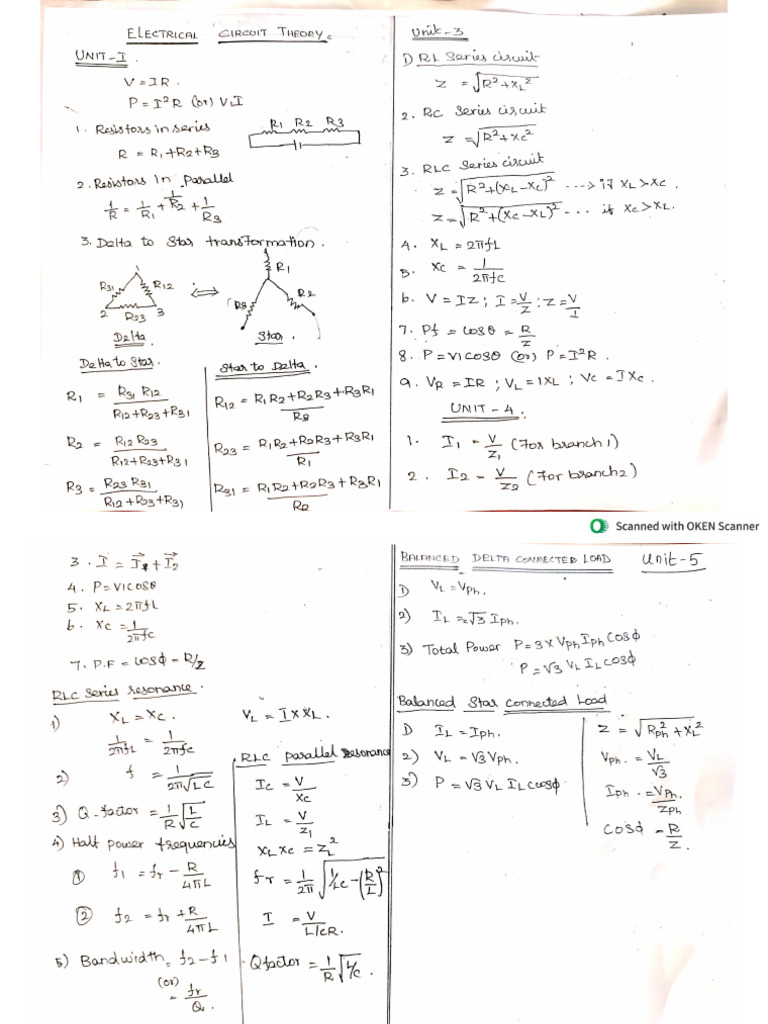 ELECTRICAL CIRCUIT THEORY.
UNIT-I.
V = IR.
P = I²R (or) V.I
1. Resistors in series
R1 R2 R3
R = R1+R2+R3
2. Resistors In Parallel
1/R = 1/R1 + 1/R2 + 1/R3
3. Delta to Star transformation.
R31 R12
2 R23 3
⇔
R1
R3 R2
Delta.
Star.
Delta to Star.
R1 = R31 R12 / R12+R23+R31
R2 = R12 R23 / R12+R23+R31
R3 = R23 R31 / R12+R23+R31
Star to Delta.
R12 = R1R2+R2R3+R3R1 / R3
R23 = R1R2+R2R3+R3R1 / R1
R31 = R1R2+R2R3+R3R1 / R2
Unit-3
1) RL Series circuit
Z = √R²+XL²
2. RC Series circuit
Z = √R²+XC²
3. RLC Series circuit
Z = √R²+(XL-XC)² ---> if XL>XC.
Z = √R²+(XC-XL)² --- if XC>XL.
4. XL = 2πfL
5. XC = 1/2πfC
6. V = IZ ; I = V/Z ; Z = V/I
7. Pf = cosθ = R/Z
8. P = VIcosθ (or) P = I²R.
9. VR = IR ; VL = IXL ; VC = IXC.
UNIT-4.
1. I1 = V/Z1 (For branch 1)
2. I2 = V/Z2 (For branch 2)
Scanned with OKEN Scanner
3. I = I1 + I2
4. P = VIcosθ
5. XL = 2πfL
6. XC = 1/2πfC
7. P.F = cosϕ - R/Z
RLC Series resonance.
1) XL = XC.
1/2πfL = 1/2πfC
2) f = 1/2π√LC
3) Q-factor = 1/R √L/C
4) Half power frequencies
① f1 = fr - R/4πL
② f2 = fr + R/4πL
5) Bandwidth = f2-f1
(or)
= fr/Q.
VL = I X XL.
RLC parallel Resonance
IC = V/XC
IL = V/Z1
XL XC = ZL²
fr = 1/2π √1/LC-(R/L)²
I = V/L/CR.
Qfactor = 1/R √L/C.
BALANCED DELTA CONNECTED LOAD Unit-5
1) VL = Vph.
2) IL = √3 Iph.
3) Total Power P = 3 x Vph Iph Cosϕ
P = √3 VL IL cosϕ
Balanced Star Connected Load
1) IL = Iph.
2) VL = √3 Vph.
3) P = √3 VL IL cosϕ
Z = √Rph²+XL²
Vph. = VL/√3
Iph. = Vph./Zph
Cosϕ = R/Z.